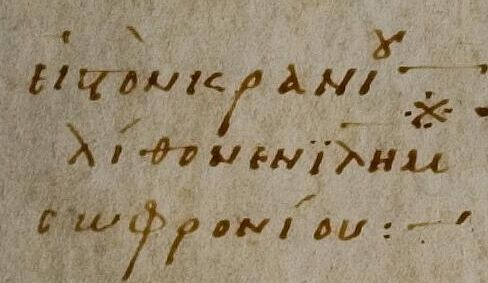 εἰςτὸνκρανίȣ
λίθονενϊλημ
σωφρονίου:—